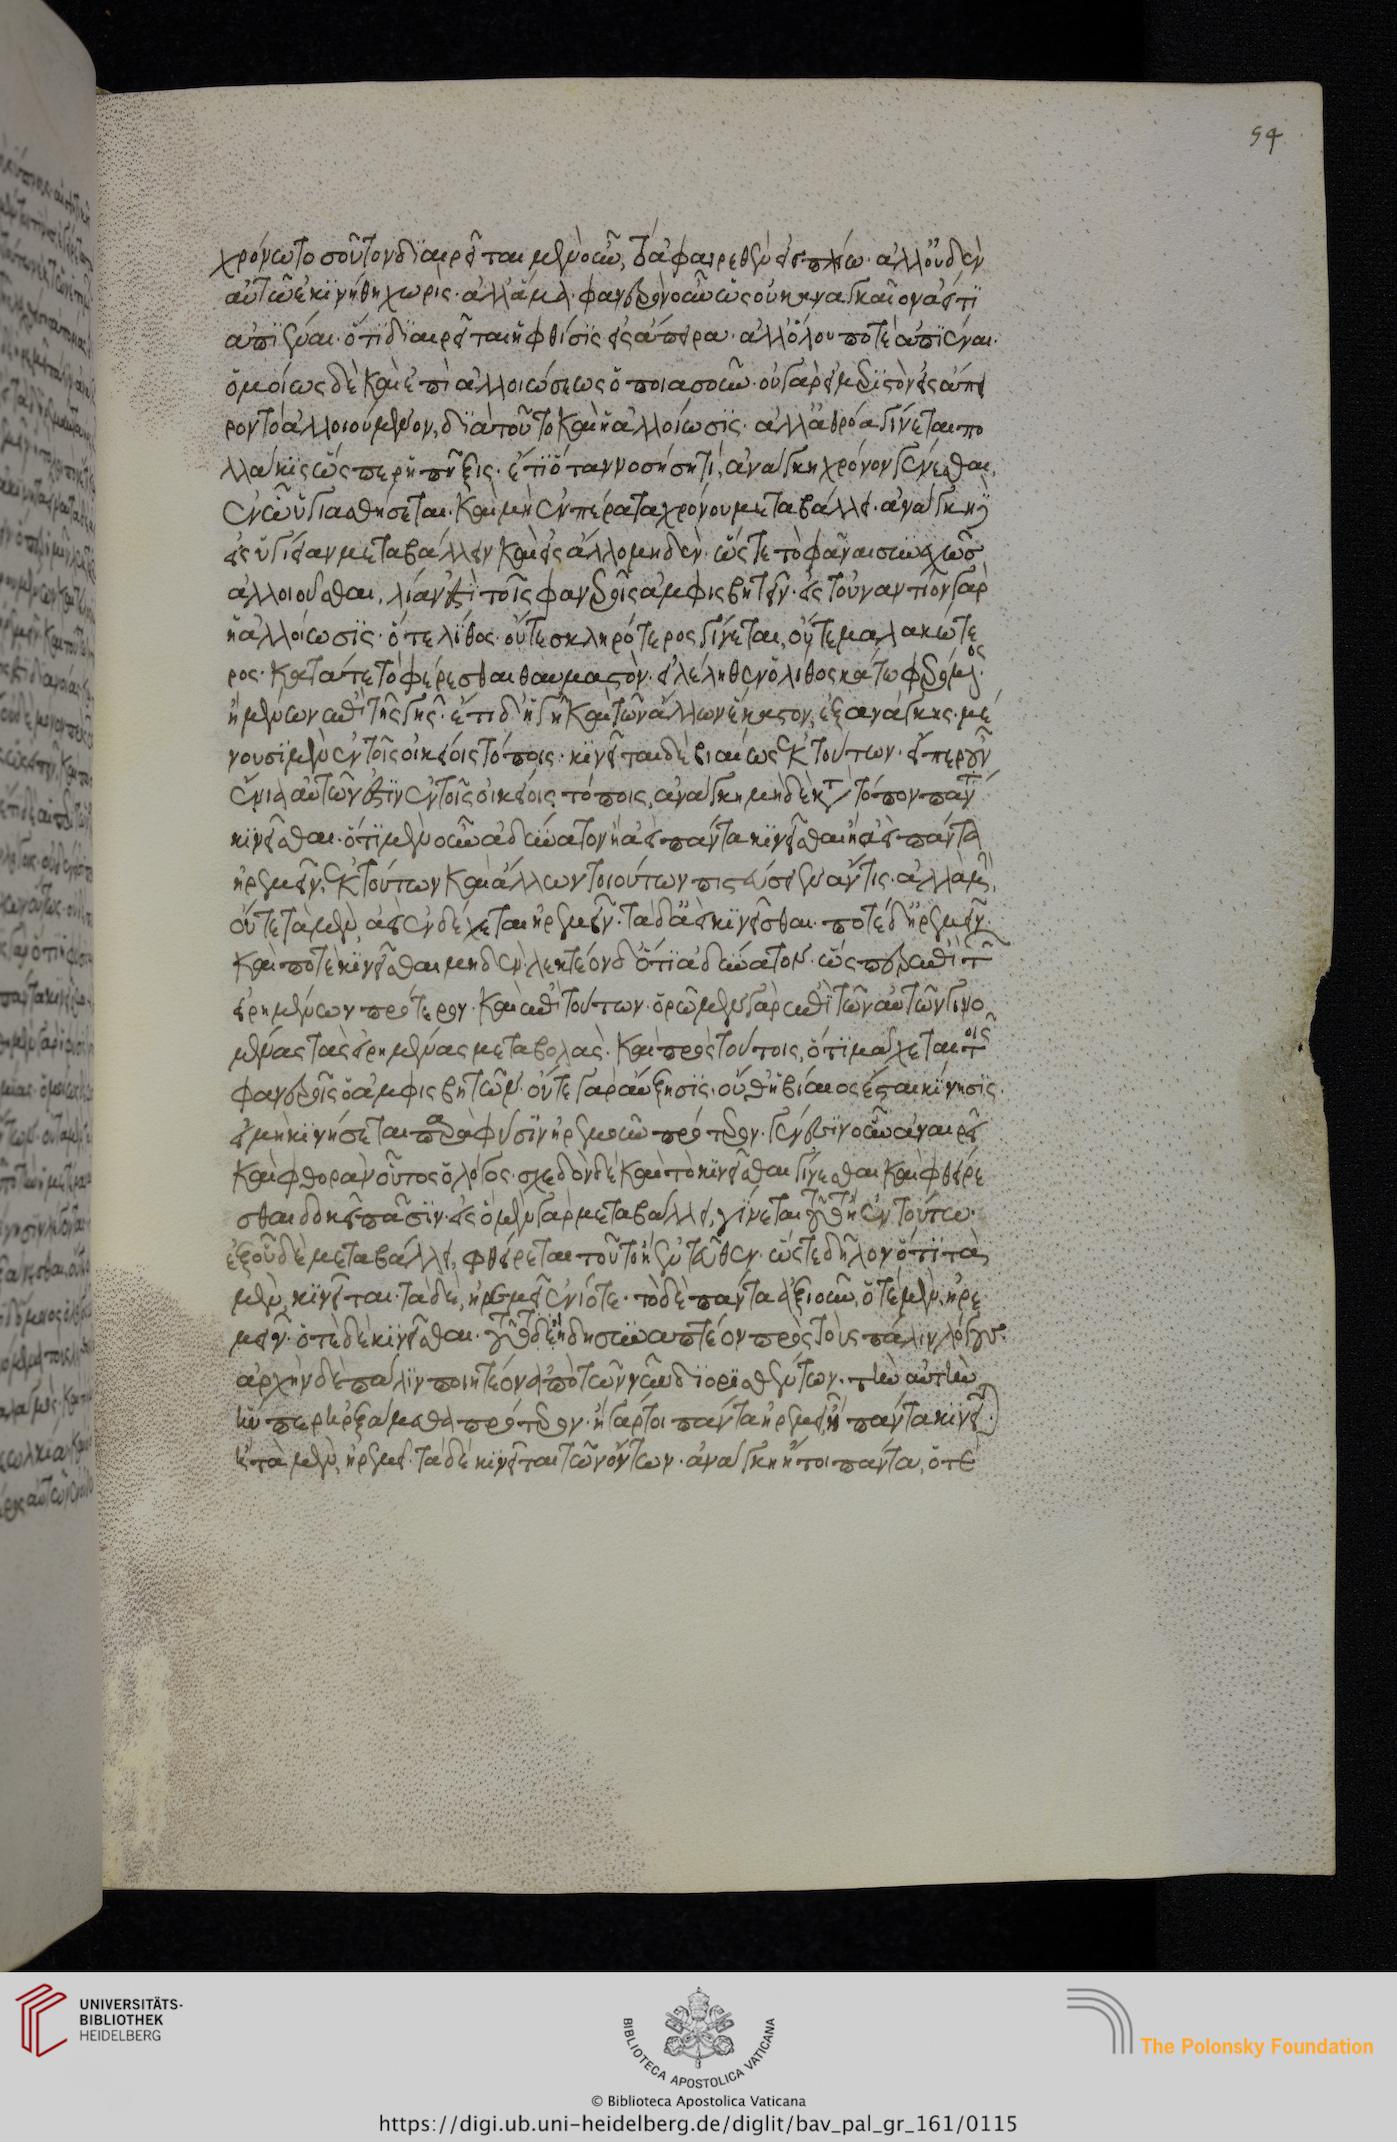 54
χρόνω τοσοῦτον διαιρεῖται μὲν οὖν, τὰ ἀφαιρεθὲν εἰς πλείω· ἀλλ' οὐδὲν
αὐτῶν ἐκινήθη χωρίς· ἀλλ' ἅμα· φανερὸν οὖν ὡς οὐκ ἀναγκαῖον ἀεί τι
ἀπιέναι· ὅτι διαιρεῖται ἡ φθίσις εἰς ἄπειρα· ἀλλ' ὅλον ποτὲ ἀπιέναι·
ὁμοίως δὲ καὶ ἐπὶ ἀλλοιώσεως ὁποιασοῦν· οὐ γὰρ εἰ μεριστὸν εἰς ἄπει
ρον τὸ ἀλλοιούμενον, διὰ τοῦτο καὶ ἡ ἀλλοίωσις· ἀλλ' ἀθρόα γίνεται πο
λλάκις ὥσπερ ἡ πῆξις· ἔτι ὅταν νοσήσῃ τί, ἀνάγκη χρόνον γενέσθαι,
ἐν ᾧ ὑγιασθήσεται· καὶ μὴ ἐν πέρατα χρόνου μεταβάλλει· ἀνάγκη
εἰς ὑγίειαν μεταβάλλειν καὶ εἰς ἄλλο μηδέν· ὥστε τὸ φάναι συνεχῶς
ἀλλοιοῦσθαι, λίαν ἐστὶ τοῖς φανεροῖς ἀμφισβητεῖν· εἰς τοὐναντίον γὰρ
ἡ ἀλλοίωσις· ὅ τε λίθος· οὔτε σκληρότερος γίνεται, οὔτε μαλακώτε
ρος· κατά τε τὸ φέρεσθαι θαυμαστὸν· εἰ λέληθεν ὁ λίθος κάτω φερόμενος·
ἢ μένων ἐπὶ τῆς γῆς· ἔτι δ' ἡ γῆ καὶ τῶν ἄλλων ἕκαστον, ἐξ ἀνάγκης· μέ
νουσι μὲν ἐν τοῖς οἰκείοις τόποις· κινεῖται δὲ βιαίως ἐκ τούτων· εἴπερ οὖν
ἔνια αὐτῶν ἐστὶν ἐν τοῖς οἰκείοις τόποις, ἀνάγκη μηδὲ κατὰ τόπον πάντα
κινεῖσθαι· ὅτι μὲν οὖν ἀδύνατον ἢ ἀεὶ πάντα κινεῖσθαι ἢ ἀεὶ πάντα
ἠρεμεῖν, ἐκ τούτων καὶ ἄλλων τοιούτων πιστεύσειεν ἄν τις· ἀλλὰ μὴν
οὔτε τὰ μὲν ἀεὶ ἐνδέχεται ἠρεμεῖν· τὰ δ' ἀεὶ κινεῖσθαι· ποτὲ δ' ἠρεμεῖν
καὶ ποτὲ κινεῖσθαι μηδέν· λεκτέον δ' ὅτι ἀδύνατον· ὥσπερ ἐπὶ τῶν
εἰρημένων πρότερον· καὶ ἐπὶ τούτων· ὁρῶμεν γὰρ ἐπὶ τῶν αὐτῶν γινο
μένας τὰς εἰρημένας μεταβολάς· καὶ πρὸς τούτοις, ὅτι μάχεται τοῖς
φανεροῖς ὁ ἀμφισβητῶν· οὔτε γὰρ αὔξησις· οὔθ' ἡ βίαιος ἔσται κίνησις·
εἰ μὴ κινήσεται παρὰ φύσιν ἠρεμοῦν πρότερον· γένεσιν οὖν ἀναιρεῖ
καὶ φθορὰν οὗτος ὁ λόγος· σχεδὸν δὲ καὶ τὸ κινεῖσθαι γίνεσθαι καὶ φθείρε
σθαι δοκεῖ πᾶσιν· εἰς ὃ μὲν γὰρ μεταβάλλει, γίνεται τοῦτο ἢ ἐν τούτω·
ἐξ οὗ δὲ μεταβάλλει, φθείρεται τοῦτο ἢ ἐντεῦθεν· ὥστε δῆλον ὅτι τὰ
μὲν, κινεῖται· τὰ δὲ, ἠρεμεῖ ἐνίοτε· τὸ δὲ πάντα ἀξιοῦν, ὁτὲ μὲν, ἠρε
μεῖν· ὁτὲ δὲ κινεῖσθαι· τοῦτο δ' ἤδη συναπτέον πρὸς τοὺς πάλιν λόγους·
ἀρχὴν δὲ πάλιν ποιητέον ἀπὸ τῶν νῦν διορισθέντων· τὴν αὐτὴν
ἥνπερ ἠρξάμεθα πρότερον· ἢ γάρ τοι πάντα ἠρεμεῖ, ἢ πάντα κινεῖται·
ἢ τὰ μὲν, ἠρεμεῖ· τὰ δὲ κινεῖται τῶν ὄντων· ἀνάγκη ἤτοι πάντα, ὁτὲ
UNIVERSITÄTS-
BIBLIOTHEK
HEIDELBERG
BIBLIOTECA APOSTOLICA VATICANA
© Biblioteca Apostolica Vaticana
The Polonsky Foundation
https://digi.ub.uni-heidelberg.de/diglit/bav_pal_gr_161/0115